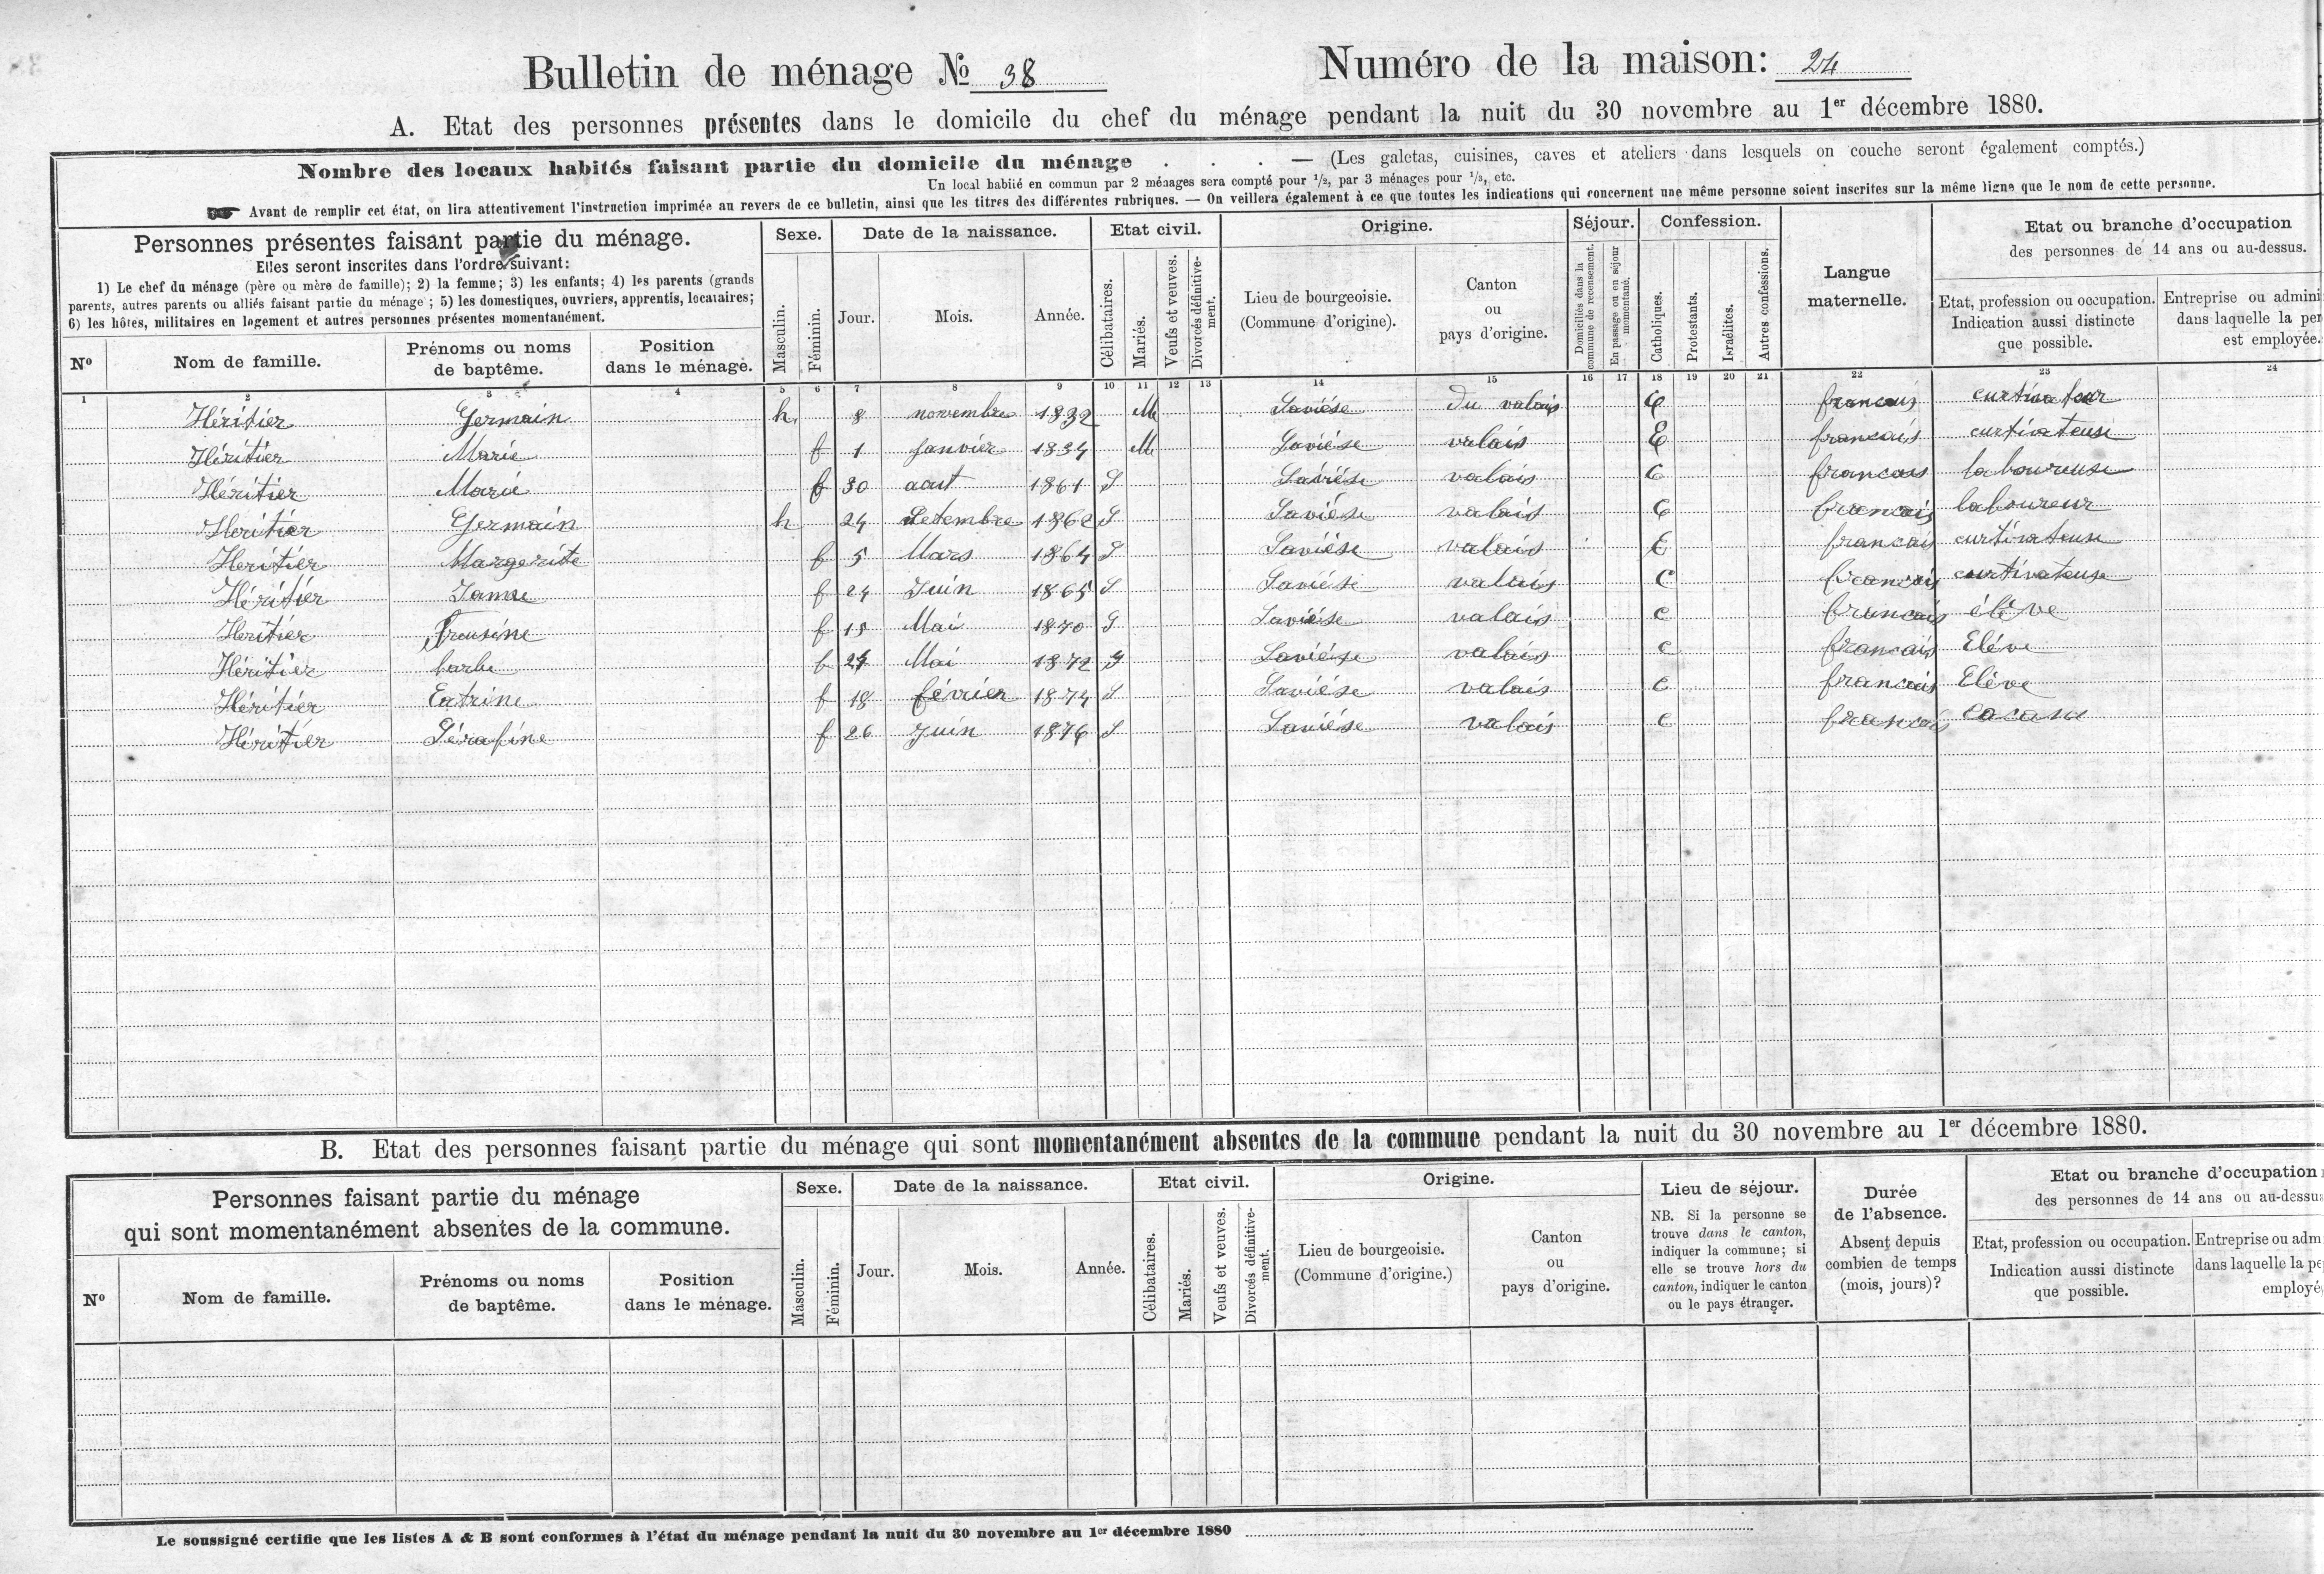 Bulletin de ménage № 38 Numéro de la maison: 24
A. Etat des personnes présentes dans le domicile du chef du ménage pendant la nuit du 30 novembre au 1er décembre 1880.
Nombre des locaux habités faisant partie du domicile du ménage . . . — (Les galetas, cuisines, caves et ateliers dans lesquels on couche seront également comptés.)
Un local habité en commun par 2 ménages sera compté pour 1/2, par 3 ménages pour 1/3, etc.
Avant de remplir cet état, on lira attentivement l'instruction imprimée au revers de ce bulletin, ainsi que les titres des différentes rubriques. — On veillera également à ce que toutes les indications qui concernent une même personne soient inscrites sur la même ligne que le nom de cette personne.
Personnes présentes faisant partie du ménage.
Elles seront inscrites dans l'ordre suivant:
1) Le chef du ménage (père ou mère de famille); 2) la femme; 3) les enfants; 4) les parents (grands
parents, autres parents ou alliés faisant partie du ménage; 5) les domestiques, ouvriers, apprentis, locataires;
6) les hôtes, militaires en logement et autres personnes présentes momentanément.
Nº
Nom de famille.
Prénoms ou noms
de baptême.
Position
dans le ménage.
Sexe.
Masculin.
Féminin.
Date de la naissance.
Jour.
Mois.
Année.
Etat civil.
Célibataires.
Mariés.
Veufs et veuves.
Divorcés définitive-
ment.
Origine.
Lieu de bourgeoisie.
(Commune d'origine).
Canton
ou
pays d'origine.
Séjour.
Domiciliées dans la
commune de recensement.
En passage ou en séjour
momentané.
Confession.
Catholiques.
Protestants.
Israélites.
Autres confessions.
Langue
maternelle.
Etat ou branche d'occupation
des personnes de 14 ans ou au-dessus.
Etat, profession ou occupation.
Indication aussi distincte
que possible.
Entreprise ou admini
dans laquelle la per
est employée.
1 2 3 4 5 6 7 8 9 10 11 12 13 14 15 16 17 18 19 20 21 22 23 24
Héritier Germain h 8 novembre 1832 M Saviése du valais C francais curtivateur
Héritier Marie f 1 Janvier 1834 M Saviése valais C francais curtivateuse
Héritier Marie f 30 aout 1861 S Saviése valais C francais laboureuse
Heritier Germain h 24 Setembre 1862 S Saviése valais C francais laboureur
Heritier Margerite f 5 Mars 1864 S Saviése valais C francais curtivateuse
Héritier f 24 Juin 1865 S Saviése valais C francais curtivateuse
Heritier f 15 Mai 1870 S Saviése valais C francais élève
Héritier barbe f Mai 1872 S Saviése valais C francais Elève
Héritier Catrine f 18 février 1874 S Saviése valais C francais Elève
Héritier Sérafine f 26 Juin 1876 S Saviése valais C francais
B. Etat des personnes faisant partie du ménage qui sont momentanément absentes de la commune pendant la nuit du 30 novembre au 1er décembre 1880.
Personnes faisant partie du ménage
qui sont momentanément absentes de la commune.
Nº
Nom de famille.
Prénoms ou noms
de baptême.
Position
dans le ménage.
Sexe.
Masculin.
Féminin.
Date de la naissance.
Jour.
Mois.
Année.
Etat civil.
Célibataires.
Mariés.
Veufs et veuves.
Divorcés définitive-
ment.
Origine.
Lieu de bourgeoisie.
(Commune d'origine.)
Canton
ou
pays d'origine.
Lieu de séjour.
NB. Si la personne se
trouve dans le canton,
indiquer la commune; si
elle se trouve hors du
canton, indiquer le canton
ou le pays étranger.
Durée
de l'absence.
Absent depuis
combien de temps
(mois, jours)?
Etat ou branche d'occupation
des personnes de 14 ans ou au-dessus
Etat, profession ou occupation.
Indication aussi distincte
que possible.
Entreprise ou adm
dans laquelle la pe
employé
Le soussigné certifie que les listes A & B sont conformes à l'état du ménage pendant la nuit du 30 novembre au 1er décembre 1880